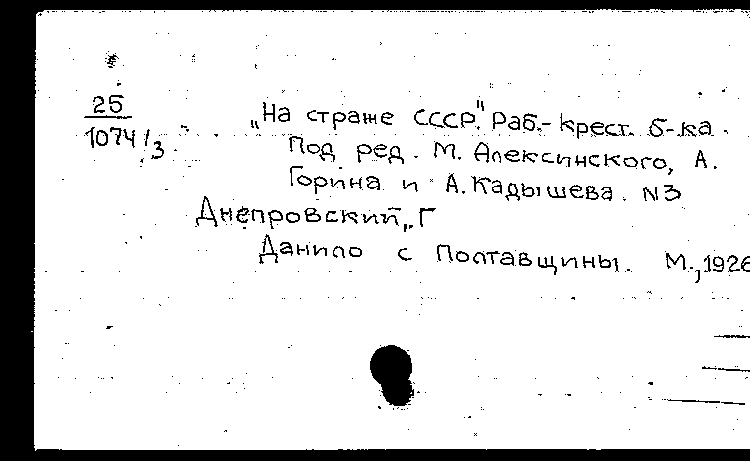 25
1074/3
„На страже СССР." Раб.- крест. б-ка.
Под ред. М. Алексинского, А.
Горина и А. Кадышева. N3
Днепровский, Г
Данило с Полтавщины. М., 1926